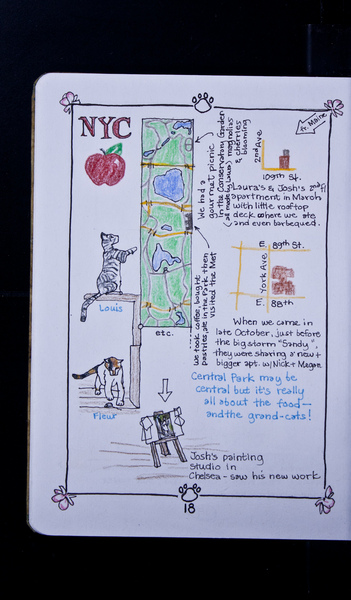 NYC
We had a
gourmet picnic
in the Conservatory Garden
(all made by Laura) magnolias
& cherries
blooming
to Maine
2nd Ave
109th St.
Laura's & Josh's 2nd fl
apartment in March
with little rooftop
deck where we ate
and even barbequed.
E. 89th St.
York Ave
E. 88th
We took coffee, bought
pastries, ate in the Park then
visited the Met
etc.
Louis
Fleur
When we came in
late October, just before
the big storm "Sandy",
they were sharing a new +
bigger apt. w/Nick + Megan
Central Park may be
central but it's really
all about the food—
and the grand-cats!
Josh's painting
studio in
Chelsea - saw his new work
18